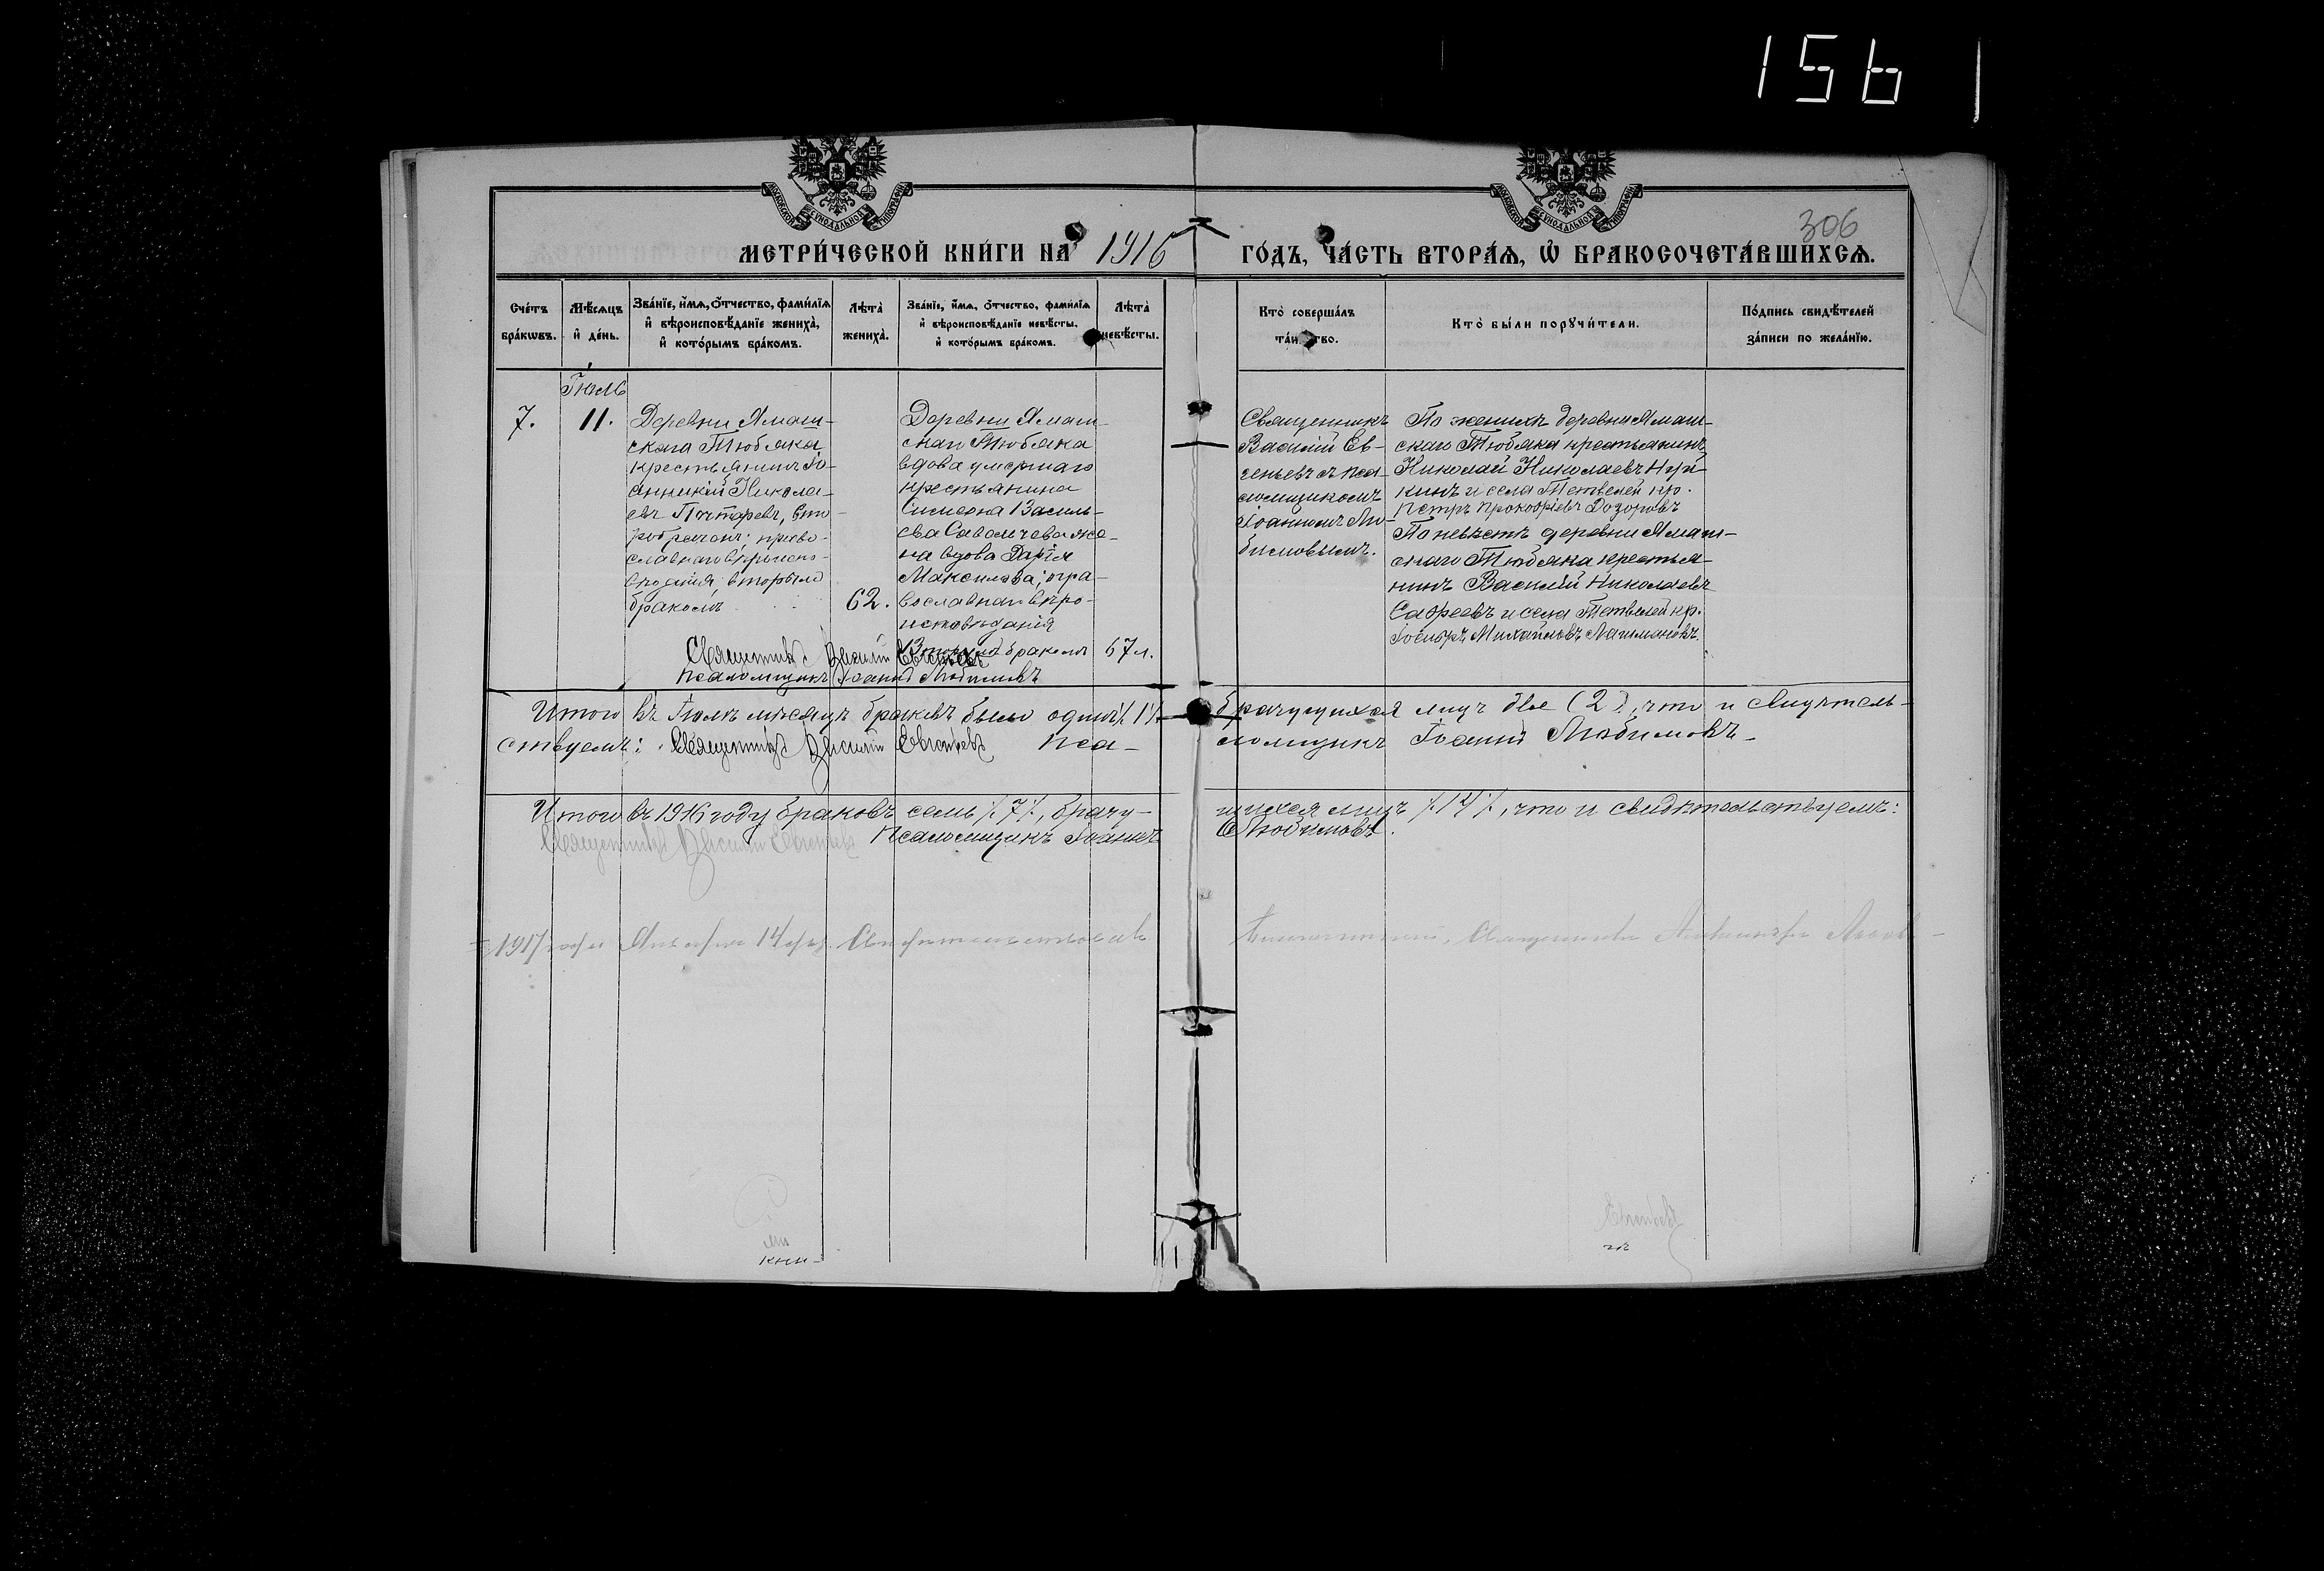 156
306
МЕТРИ́ЧЕСКОЙ КНИ́ГИ НА 1916 ГО́ДЪ, ЧА́СТЬ ВТОРА́Я, Ѡ БРАКОСОЧЕТА́ВШИХСЯ.
Сче́тъ бра́кѡвъ.
Мѣ́сяцъ и де́нь.
Зва́нїе, и́мя, ѻ́тчество, фами́лїя и вѣроисповѣ́данїе жениха̀, и кото́рымъ бра́комъ.
Лѣ́та жениха̀.
Зва́нїе, и́мя, ѻ́тчество, фами́лїя и вѣроисповѣ́данїе невѣ́сты, и кото́рымъ бра́комъ.
Лѣ́та невѣ́сты.
Кто̀ соверша́лъ
Кто̀ бы́ли порꙋчи́тели.
По́дпись свидѣ́телей за́писи по жела́нїю.
Іюль
7.
11.
Деревни Ямаш-
скаго Тюбяка
крестьянинъ Іо-
анникій Никола-
евъ
православнаго вѣроиспо-
вѣданія; вторымъ
бракомъ
62.
Деревни Ямаш-
скаго Тюбяка
вдова умершаго
крестьянина
Симеона Василь-
ева
вдова Дарія
Максимова; пра-
вославнаго вѣро-
исповѣданія
бракомъ
67 л.
Священникъ
Василій Ев-
геньевъ съ пса-
ломщикомъ
Іоанномъ Лю-
бимовымъ.
По женихѣ деревни Ямаш-
скаго Тюбяка крестьянинъ
Николай Николаевъ
и села Тетвелей кр.
Петръ Прокофіевъ Дозоровъ
По невѣстѣ деревни Ямаш-
скаго Тюбяка крестья-
нинъ Василій Николаевъ
Сафеевъ и села Тетвелей кр.
Іосифъ Михайловъ
Священникъ Василій Евгеньевъ
Псаломщикъ Іоаннъ Любимовъ
Итого въ Іюлѣ мѣсяцѣ браковъ было одинъ /1/ брачущихся лицъ двое (2), что и свидѣтель-
ствуемъ: Священникъ Василій Евгеньевъ Пса-ломщикъ Іоаннъ Любимовъ
Итого въ 1916 году браковъ семь /7/, брачу-щихся лицъ /14/, что и свидѣтельствуемъ:
Священникъ Василій Евгеньевъ Псаломщикъ Іоаннъ Любимовъ.
1917 года Января 14 дня
Евгеньевъ